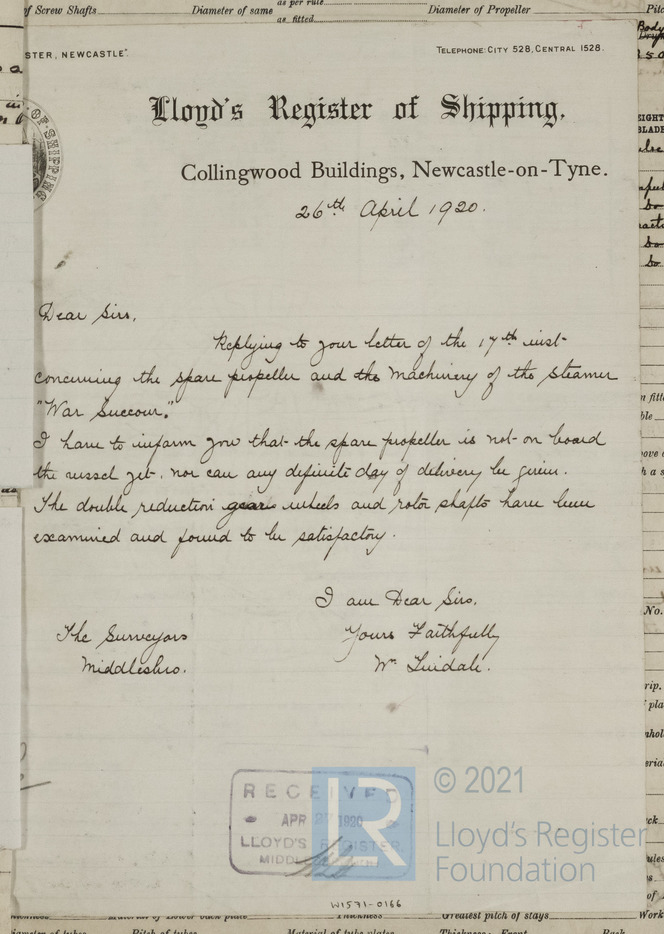 of Screw Shafts Diameter of same as per rule as fitted Diameter of Propeller Pitc
STER, NEWCASTLE". TELEPHONE: CITY 528, CENTRAL 1528.
OF SHIPPING
Lloyd's Register of Shipping,
Collingwood Buildings, Newcastle-on-Tyne.
26th April 1920.
Dear Sirs,
Replying to your letter of the 17th inst
concerning the spare propeller and the Machinery of the Steamer
"War Succour."
I have to inform you that the spare propeller is not on board
the vessel yet, nor can any definite day of delivery be given.
The double reduction gear wheels and rotor shafts have been
examined and found to be satisfactory.
I am Dear Sirs,
The Surveyors Yours Faithfully
Middlesbro. Wm
RECEIVED
APR 1920
LLOYD'S REGISTER,
LR
© 2021
Lloyd's Register
Foundation
W1571-0166
Material of Lower back plate Thickness Greatest pitch of stays Work
Diameter of tubes Pitch of tubes Material of tube plates Thickness: Front Back